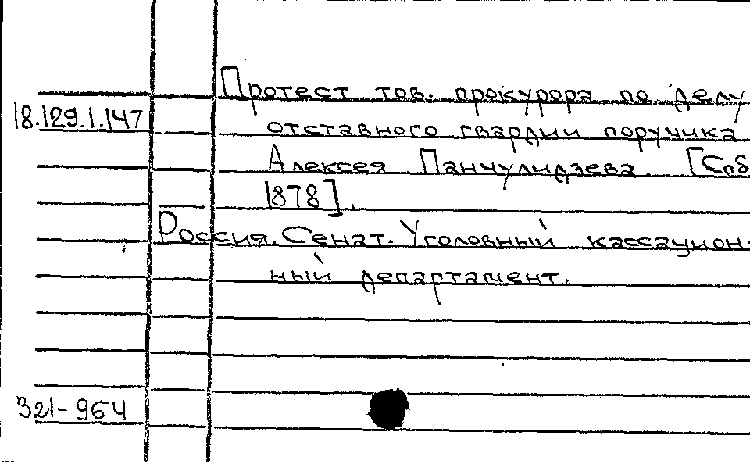 Протест тов. прокурора по делу
18.129.1.147
отставного гвардии поручика
Алексея Панчулидзева. [Спб
1878].
Россия. Сенат. Уголовный кассацион-
ный департамент.
321-964